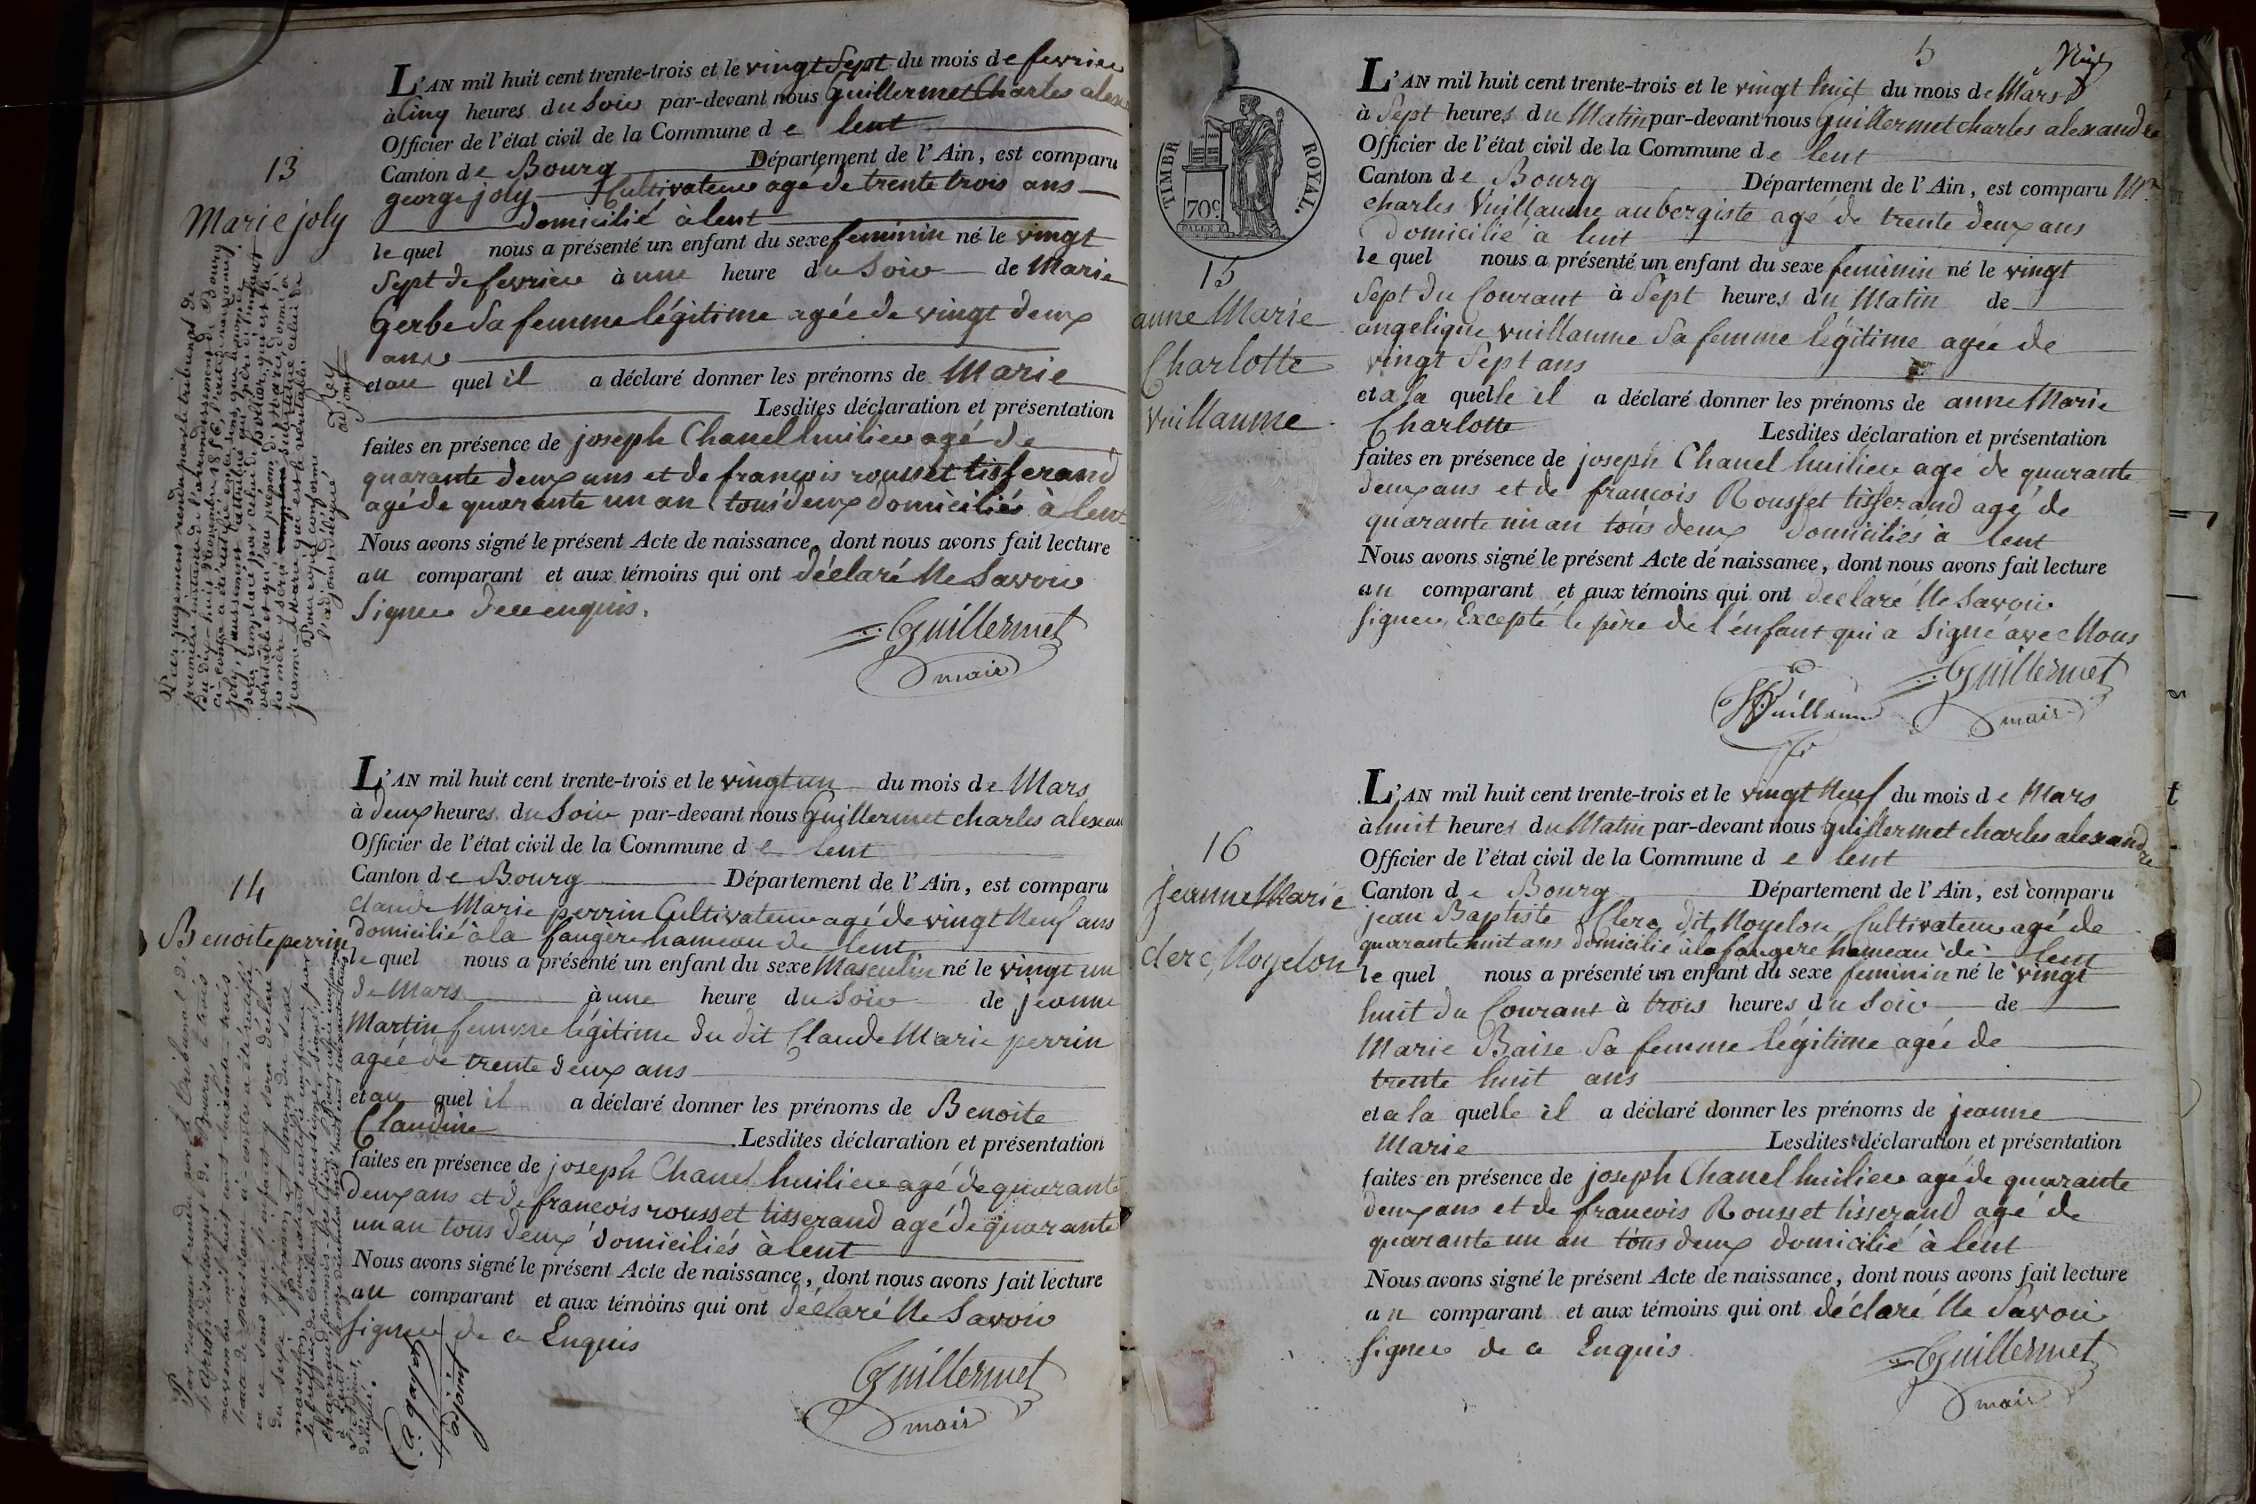 L'AN mil huit cent trente-trois et le vingt sept du mois de fevrier
à cinq heures du Soir par-devant nous Guillermet Charles alexa
Officier de l'état civil de la Commune de lent
Canton de Bourg Département de l'Ain, est comparu
george joly Cultivateur agé de trente trois ans
domicilié à lent
le quel nous a présenté un enfant du sexe feminin né le vingt
Sept de fevrier à une heure du Soir de Marie
Gerbe Sa femme légitime agée de vingt deux
ans
et au quel il a déclaré donner les prénoms de Marie
Lesdites déclaration et présentation
faites en présence de joseph Chanel huilier agé de
quarante deux ans et de françois rousset tisserand
agé de quarante un an tous deux domiciliés à lent
Nous avons signé le présent Acte de naissance, dont nous avons fait lecture
au comparant et aux témoins qui ont déclaré Ne Savoir
Signer de ce enquis.
Guillermet
maire
13
Marie joly
Par jugement rendu par le tribunal de
première instance de l'arrondissement de Bourg
du dix-huit novembre 1856, l'acte de naissance
ci-contre a été rectifié en ce sens, que le nom de
joly, faussement attribué au père de l'enfant
sera remplacé par celui de Bollar, qui est le
véritable et qu'au prénom de Marie, donné à
la mère y sera substitué celui de
jeanne Marie qui est le véritable.
Pour copie conforme
l'adjoint délégué,
Rey
adjoint
L'AN mil huit cent trente-trois et le vingt un du mois de Mars
à deux heures du Soir par-devant nous Guillermet charles alexan
Officier de l'état civil de la Commune de lent
Canton de Bourg Département de l'Ain, est comparu
claude Marie perrin Cultivateur agé de vingt Neuf ans
domicilié à la faugère hameau de lent
le quel nous a présenté un enfant du sexe Masculin né le vingt un
de Mars à une heure du Soir de jeanne
Martin femme légitime du dit Claude Marie perrin
agée de trente deux ans
et au quel il a déclaré donner les prénoms de Benoite
Claudine
Lesdites déclaration et présentation
faites en présence de joseph Chanel huilier agé de quarante
deux ans et de francois rousset tisserand agé de quarante
un an tous deux domiciliés à lent
Nous avons signé le présent Acte de naissance, dont nous avons fait lecture
au comparant et aux témoins qui ont déclaré Ne Savoir
signer de ce Enquis
Guillermet
maire
14
Benoite perrin
Par jugement rendu par le Tribunal de
l'arrondissement de Bourg, le trois
novembre mil huit cent soixante-trois
l'acte de naissance ci-contre a été rectifié
en ce sens que l'enfant y sera déclaré
du sexe féminin et non du sexe
masculin.
5
L'AN mil huit cent trente-trois et le vingt huit du mois de Mars
à Sept heures du Matin par-devant nous Guillermet charles alexandre
Officier de l'état civil de la Commune de lent
Canton de Bourg Département de l'Ain, est comparu Mr
charles Vuillaume aubergiste agé de trente deux ans
domicilié à lent
le quel nous a présenté un enfant du sexe feminin né le vingt
Sept du Courant à Sept heures du Matin de
angelique vuillaume Sa femme légitime agée de
vingt Sept ans
et a la quelle il a déclaré donner les prénoms de anne Marie
Charlotte
Lesdites déclaration et présentation
faites en présence de joseph Chanel huilier agé de quarante
deux ans et de francois Rousset tisserand agé de
quarante un an tous deux domiciliés à lent
Nous avons signé le présent Acte de naissance, dont nous avons fait lecture
au comparant et aux témoins qui ont declaré Ne Savoir
signer, Excepté le père de l'enfant qui a Signé avec Nous
Vuillaume
Guillermet
maire
TIMBRE ROYAL.
70c
15
anne Marie
Charlotte
vuillaume
L'AN mil huit cent trente-trois et le vingt Neuf du mois de Mars
à huit heures du Matin par-devant nous Guillermet charles alexandre
Officier de l'état civil de la Commune de lent
Canton de Bourg Département de l'Ain, est comparu
jean Baptiste Clerc dit Noyelon Cultivateur agé de
quarante huit ans domicilié à la faugere hameau de lent
le quel nous a présenté un enfant du sexe feminin né le vingt
huit du Courant à trois heures du Soir de
Marie Baise Sa femme légitime agée de
trente huit ans
et a la quelle il a déclaré donner les prénoms de jeanne
Marie
Lesdites déclaration et présentation
faites en présence de joseph Chanel huilier agé de quarante
deux ans et de francois Rousset tisserand agé de
quarante un an tous deux domicilié à lent
Nous avons signé le présent Acte de naissance, dont nous avons fait lecture
au comparant et aux témoins qui ont déclaré Ne Savoir
signer de ce Enquis
Guillermet
maire
16
Jeanne Marie
clerc, Noyelon